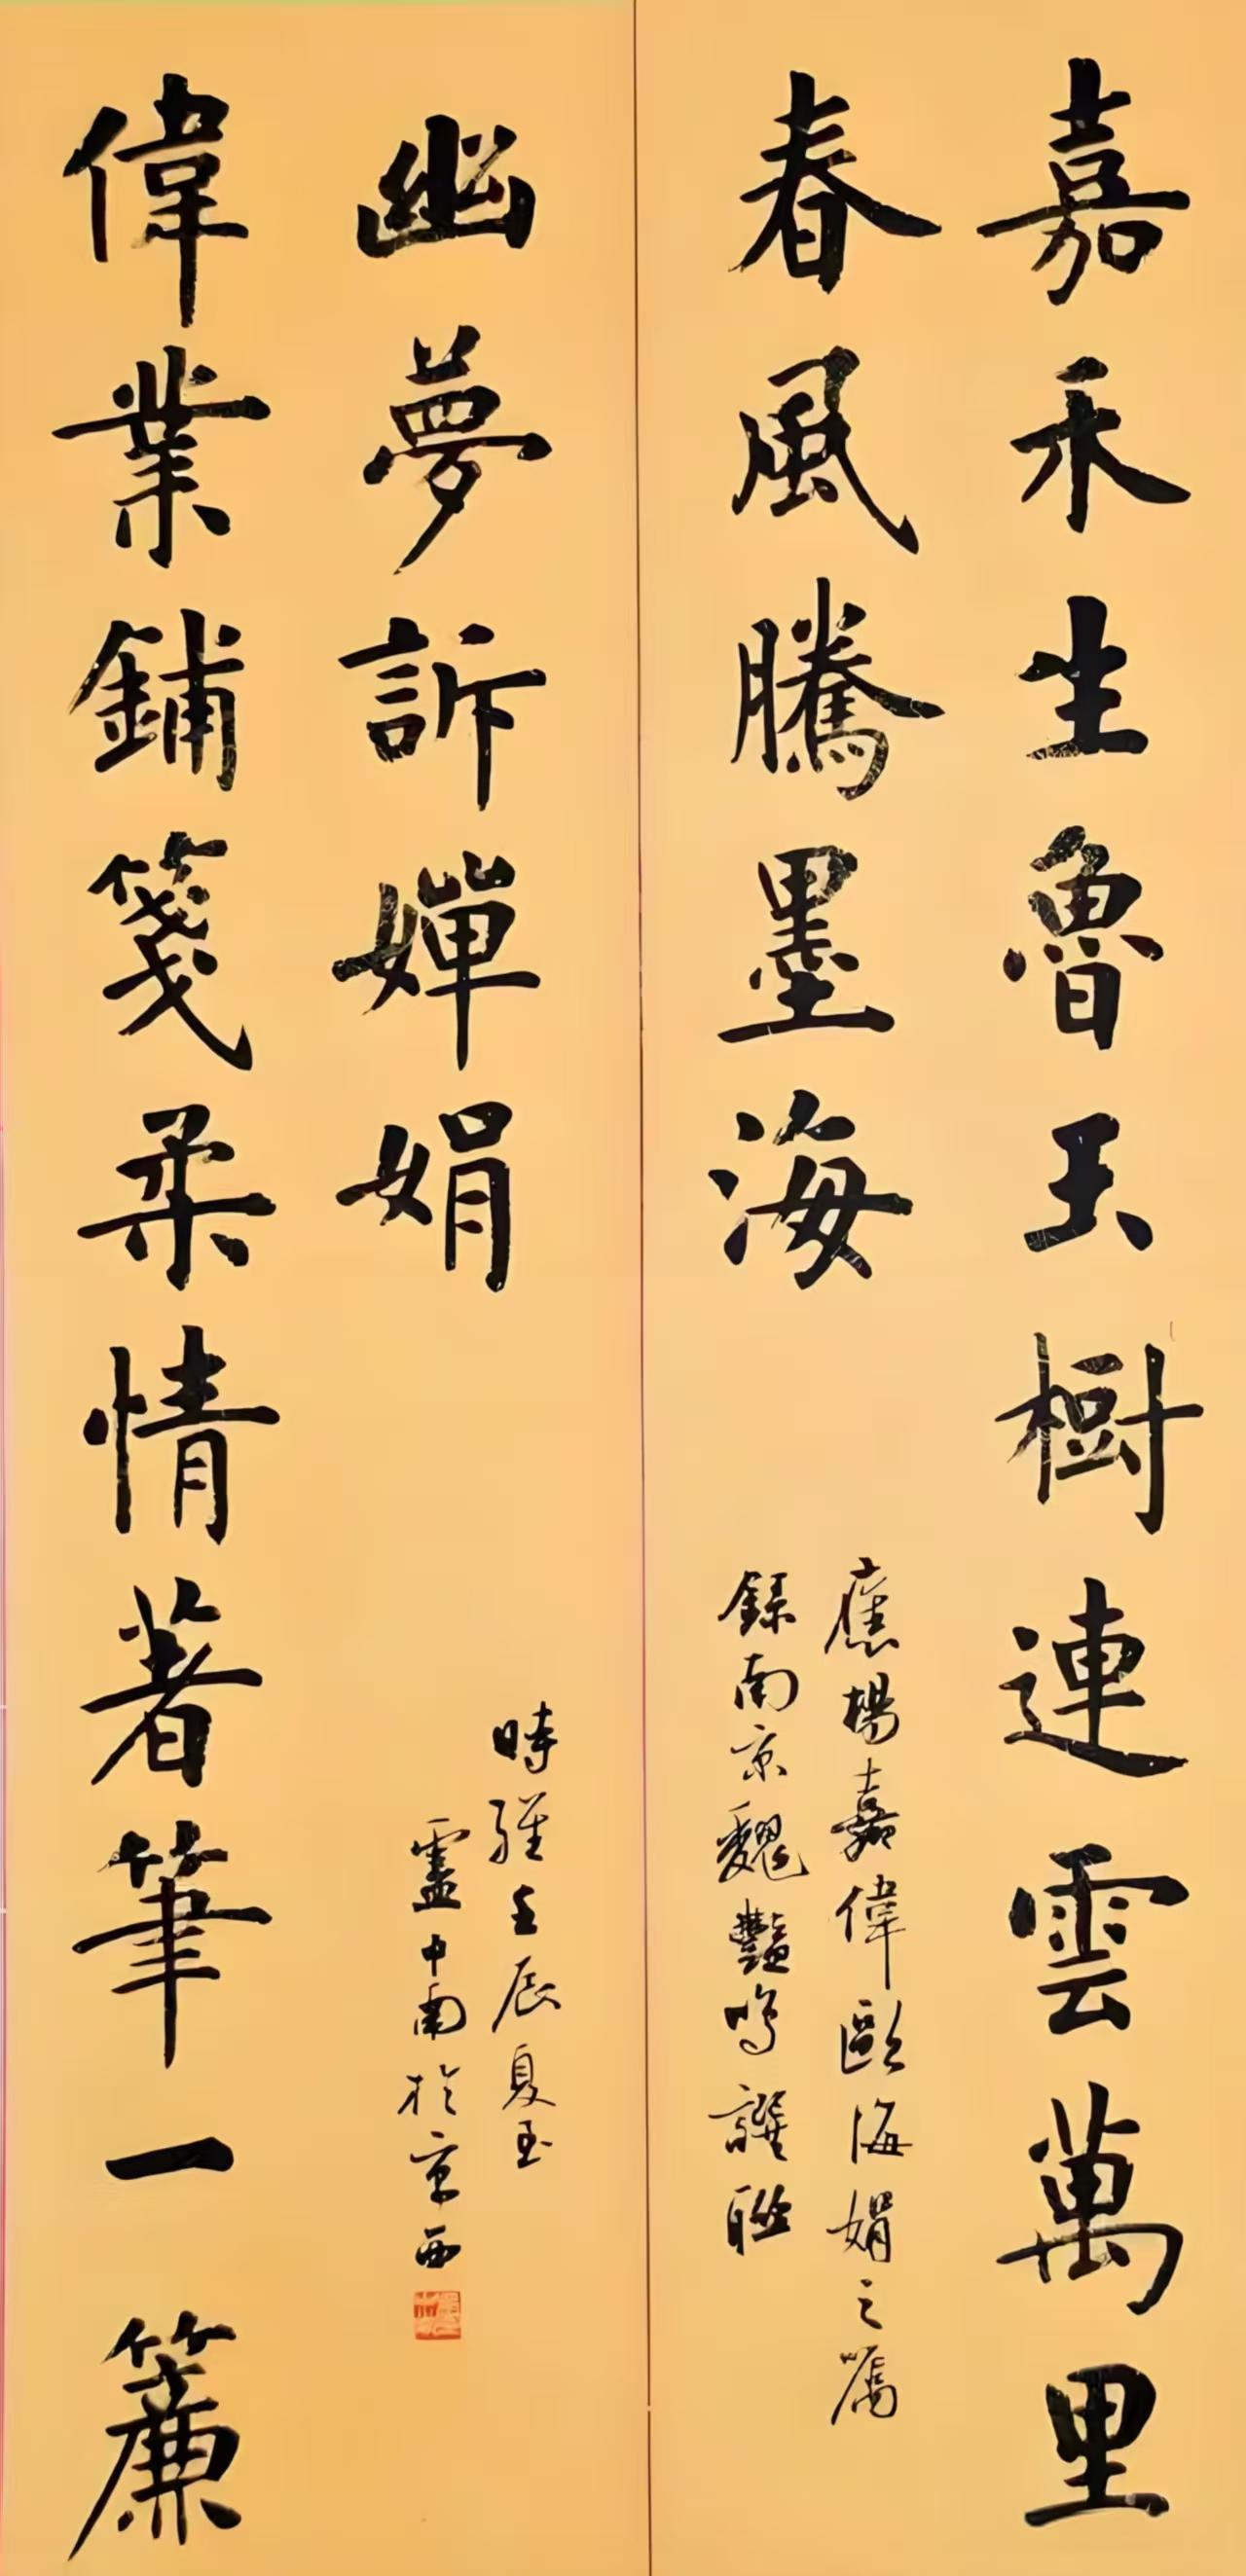 嘉禾生魯玉樹連雲萬里
春風騰墨海
應楊嘉偉歐海娟之囑
錄南京魏艷鳴譔聯
偉業鋪箋柔情著筆一簾
幽夢訴嬋娟
時維壬辰夏至
盧中南於京西